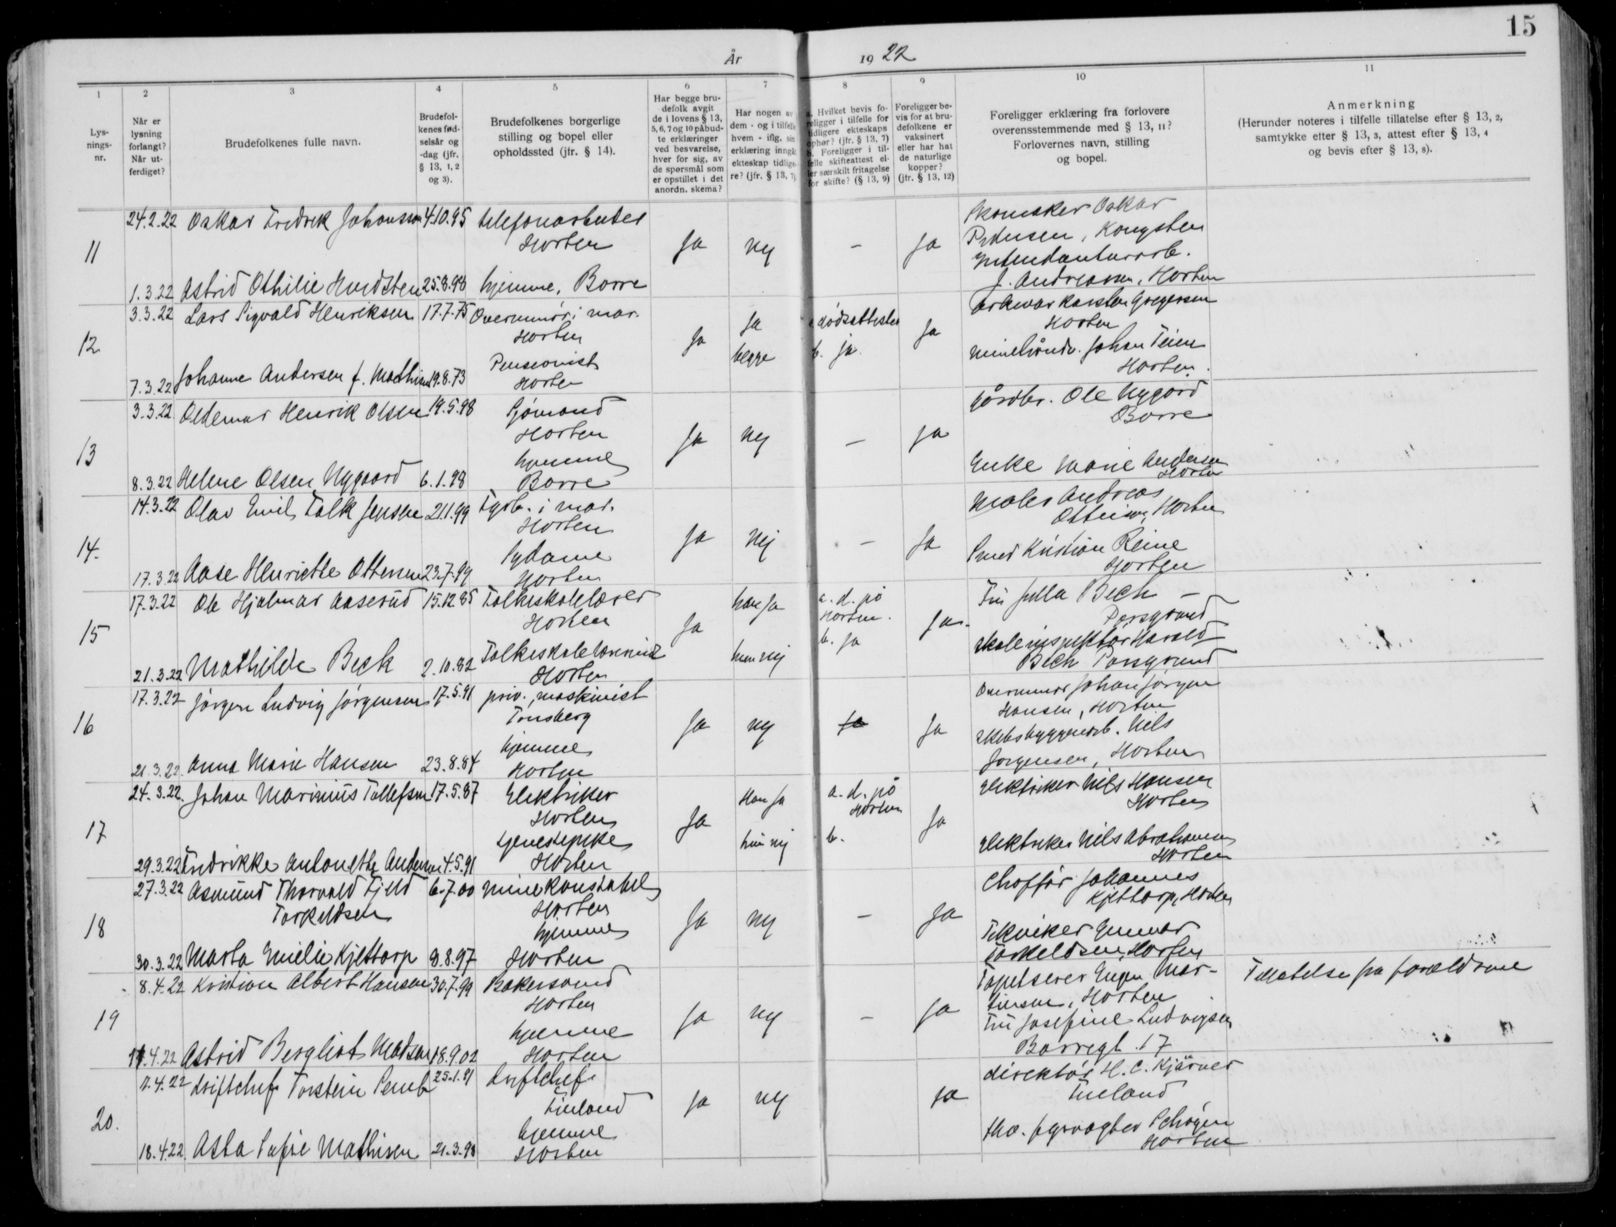 15
År 1922
1 2 3 4 5 6 7 8 9 10 11
Lysningsnr.
Når er lysning forlangt? Når utferdiget?
Brudefolkenes fulle navn.
Brudefolkenes fødselsår og -dag (jfr. § 13, 1, 2 og 3).
Brudefolkenes borgerlige stilling og bopel eller opholdssted (jfr. § 14).
Har begge brudefolk avgit de i lovens § 13, 5, 6, 7 og 10 påbudte erklæringer ved besvarelse, hver for sig, av de spørsmål som er opstillet i det anordn. skema?
Har nogen av dem - og i tilfelle hvem - iflg. sin erklæring inngåt ekteskap tidligere? (jfr. § 13, 7)
Hvilket bevis foreligger i tilfelle for tidligere ekteskaps ophør? (jfr. § 13, 7) b. Foreligger i tilfelle skifteattest eller særskilt fritagelse for skifte? (§ 13, 9)
Foreligger bevis for at brudefolkene er vaksinert eller har hat de naturlige kopper? (jfr. § 13, 12)
Foreligger erklæring fra forlovere overensstemmende med § 13, 11? Forlovernes navn, stilling og bopel.
Anmerkning
(Herunder noteres i tilfelle tillatelse efter § 13, 2, samtykke efter § 13, 3, attest efter § 13, 4 og bevis efter § 13, 8).
11
24.2.22 Oskar Fredrik Johansen 4.10.95 telefonarbeider Horten
Ja nej – Ja
Skomaker Oskar Pedersen, Kongsten
Intendanturarb. J. Andreassen, Horten
1.3.22 Astrid Othilie 25.8.98 hjemme, Borre
12
3.3.22 Lars Sigvald Henriksen 17.7.75 Overminør i mar. Horten
Ja Ja begge dødsattester b. ja. Ja
arkivar Karsten Gregersen Horten
Johan Teien Horten.
7.3.22 Johanne Andersen f. 19.8.73 Pensionist Horten
13
3.3.22 Oldemar Henrik Olsen 19.5.98 Sjømand Horten
Ja nej – ja
Gårdbr. Ole Nygård Borre
Enke Marie Andersen Horten
8.3.22 Helene Olsen Nygaard 6.1.98 hjemme Borre
14.
14.3.22 Olav Emil Falk Jensen 21.1.99 Fyrb. i mar. Horten
Ja Nej – Ja
Maler Andreas Ottersen, Horten
Smed Kristian Reine Horten
17.3.22 Aase Henriette Ottersen 23.7.99 Sydame Horten
15
17.3.22 Ole Hjalmar Aaserud 15.12.85 Folkeskolelærer Horten
Ja han ja hun nej a. d. på Horten. b. ja Ja.
Fru Julla Bech – Porsgrund
skoleinspektør Harald Bech Porsgrund
21.3.22 Mathilde Beck 2.10.82 Folkeskolelærerinde Horten
16
17.3.22 Jørgen Ludvig Jørgensen 17.5.91 priv. maskinist Tønsberg
Ja nej Ja
Overminør Johan Jørgen Hansen, Horten
Skibsbyggerarb. Nils Jørgensen, Horten
21.3.22 Anna Marie Hansen 23.8.84 hjemme Horten
17
24.3.22. Johan Marinius Tollefsen 17.5.87 Elektriker Horten
Ja Han ja hun nej a. d. på Horten b. Ja
elektriker Nils Hansen Horten
elektriker Nils Abrahamsen Horten
29.3.22 Fredrikke Antonette Andersen 4.5.91 tjenestepike Horten
18
27.3.22 Asmund Thorvald Fjeld Torkeldsen 6.7.00 minekonstabel Horten
Ja nej – Ja
Choffør Johannes Kjettorp, Horten
Tekniker Gunnar Torkeldsen, Horten
30.3.22 Marta Emilie Kjettorp 9.8.97 hjemme Horten
19
8.4.22 Kristian Albert Hansen 30.7.99 Bakersvend Horten
Ja nej – Ja
Tapetserer Eugen Martinsen, Horten
Fru Josefine Ludvigsen Borregt. 17
Tillatelse fra foreldrene
11.4.22 Astrid Bergliot Madsen 18.9.02 hjemme Horten
20.
11.4.22 driftchef Torstein 25.1.91 driftchef Finland
Ja nej ja
direktør H. C. Kjärner Finland
fyrvogter Horten
18.4.22 Asta Sofie Mathisen 21.3.98 hjemme Horten